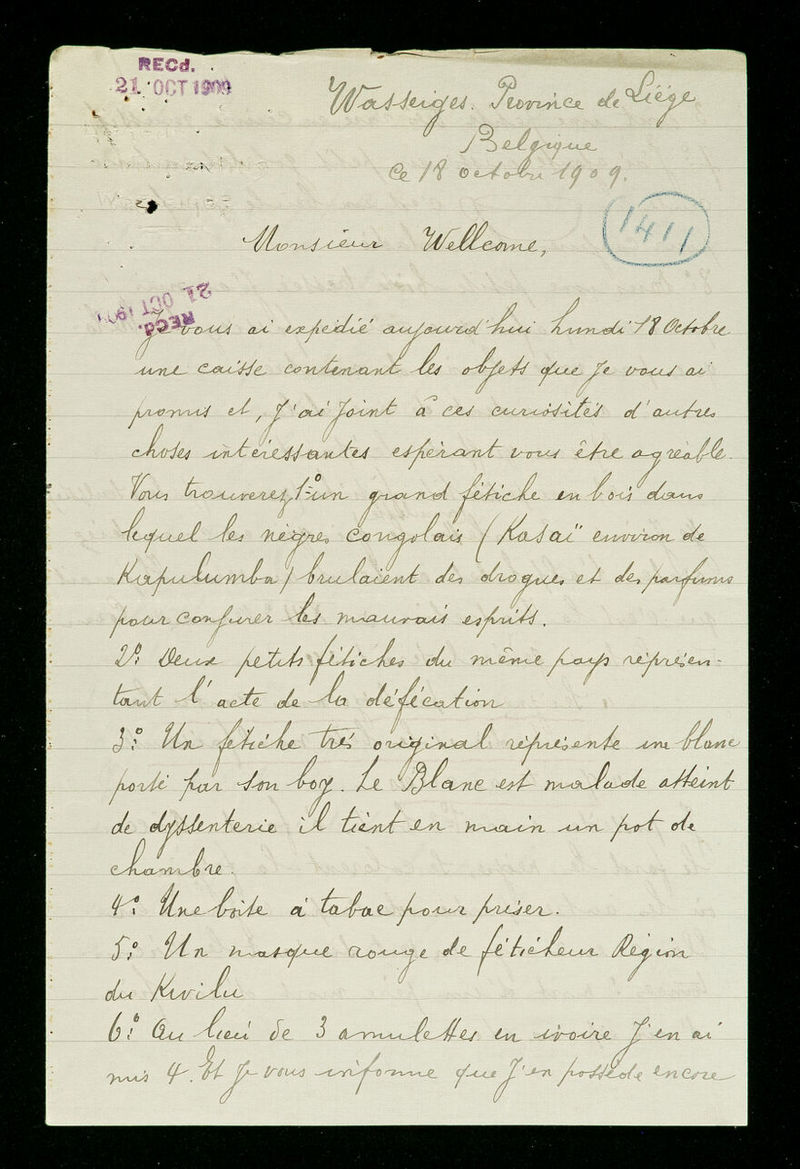 RECd.
21 OCT 1909
Wasseiges. Province de Liége
Belgique
Ce 18 octobre 1909.
1411
Monsieur Wellcome,
RECd.
21 OCT 1909
Je vous ai expédié aujourd'hui lundi 18 Octobre
une caisse contenant les objets que je vous ai
promis et, j'ai joint à ces curiosités d'autres
choses intéressantes espérant vous être agréable.
Vous trouverez 1º un grand fétiche en bois dans
lequel les nègres congolais (Kasaï environ de
Kapulumba) brulaient des drogues et des parfums
pour conjurer les mauvais esprits.
2º: Deux petits fétiches du même pays représen-
tant l'acte de la défécation
3º: Un fétiche très original représente une blanc
porté par son boy. Le Blanc est malade atteint
de dyssenterie il tient en main un pot de
chambre.
4º: Une boite à tabac pour priser.
5º: Un masque rouge de féticheur Région
du Kwilu
6º: Au lieu de 3 amulettes en ivoire J'en ai
mis 4. Et je vous informe que J'en possède encore